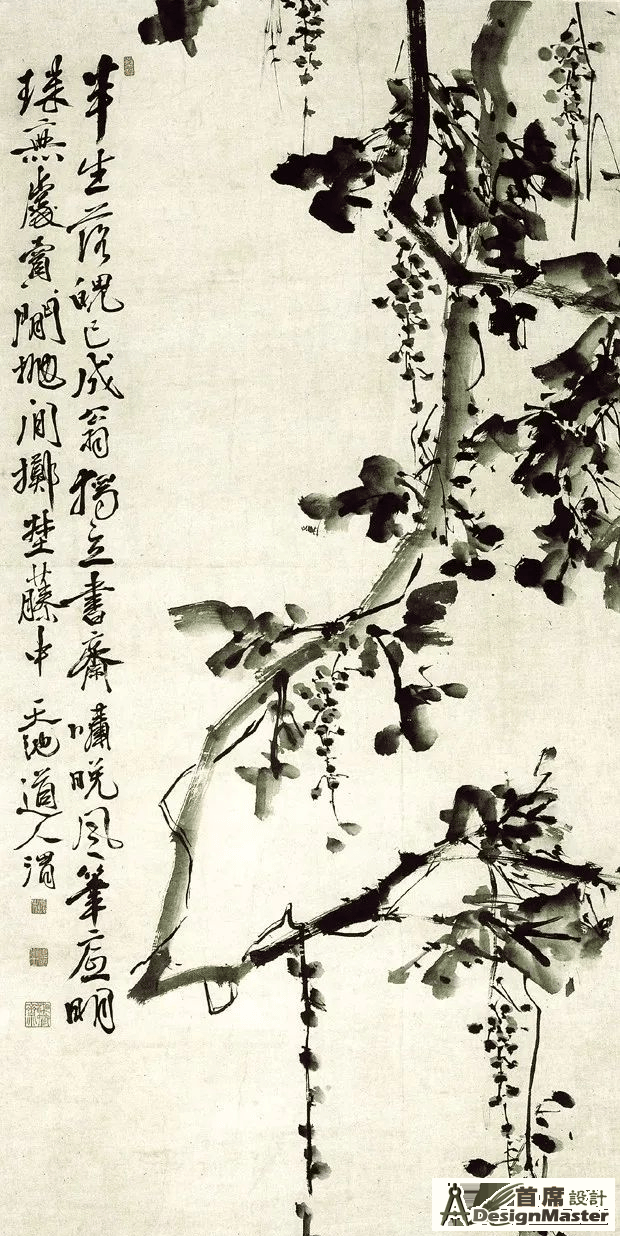 半生落魄已成翁獨立書齋嘯晚風筆底明
珠無處賣閒拋閒擲埜藤中天池道人渭
首席設計
DesignMaster